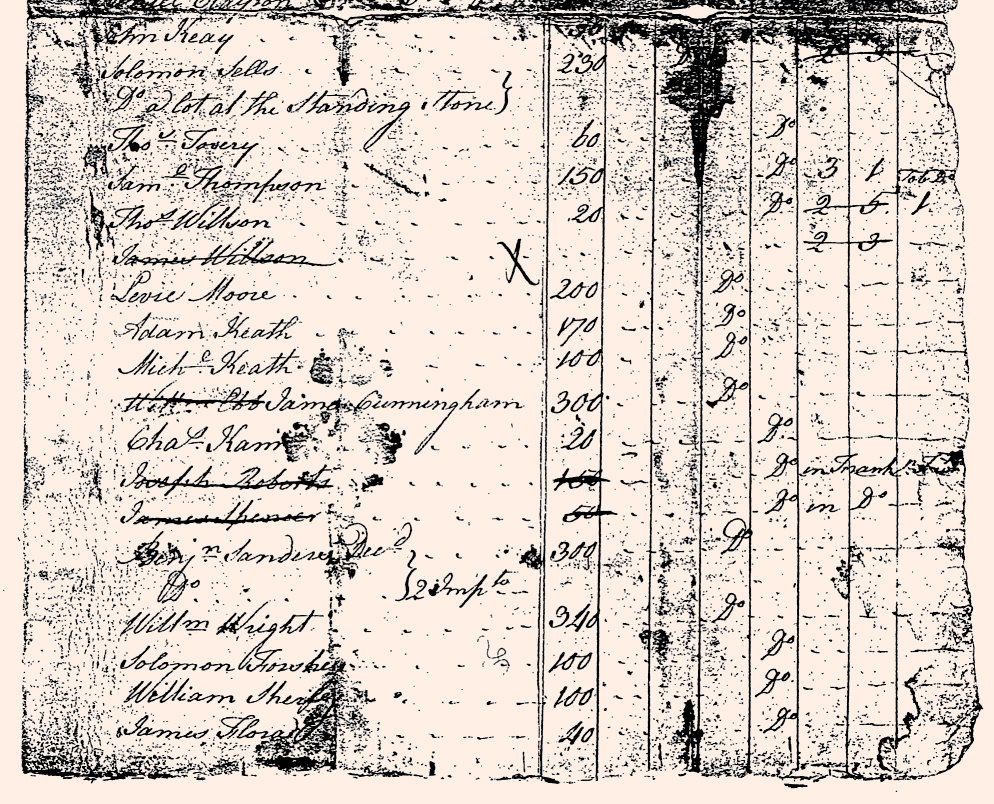 John Keay
Solomon Sells 230 2 3
Do a lot at the Standing Stone }
Thos Tovery 60 Do
Saml Thompson 150 Do 3 1
Thos Willson 20 Do 2 5 1
James Willson X 2 3
Levie Moore 200 Do
Adam Keath 170 Do
Michl Keath 100 Do
Cunningham 300 Do
Chas Kain 20 Do
Joseph Roberts 150 Do in
James Spencer 50 Do in Do
Benjn Sanders Decd 300 Do
Do } 2 Impts
Willm Wright 340 Do
Solomon 100 Do
William 100 Do
James 40 Do